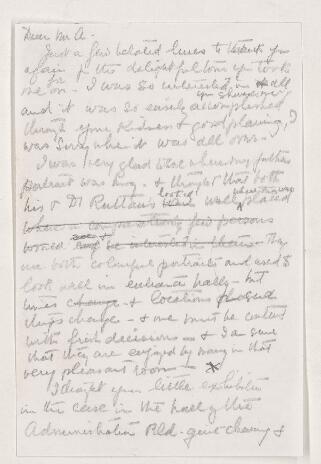 Dear Mr. A.
Just a few belated lines to thank you
again for the delightful tour you took
me on. I was so interested in all
you showed me
and it was so easily accomplished
through your kindness & good planning, I
was sorry when it was all over.
I was very glad to see where my father's
portrait was hung - & thought that both
his & Dr Ruttan's looked well placed
where comparatively few persons
would be interested in them - They
are both colourful portraits and used to
look well in entrance halls - but
times change - & locations
things change - & one must be content
with fresh decisions - & I am sure
that they are enjoyed by many in that
very pleasant room -
I thought your little exhibition
in the case in the hall of the
Administration Bld - quite charming &